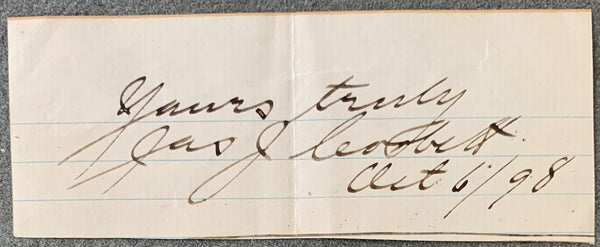 Yours truly
Jas J Corbett
Oct 6/98